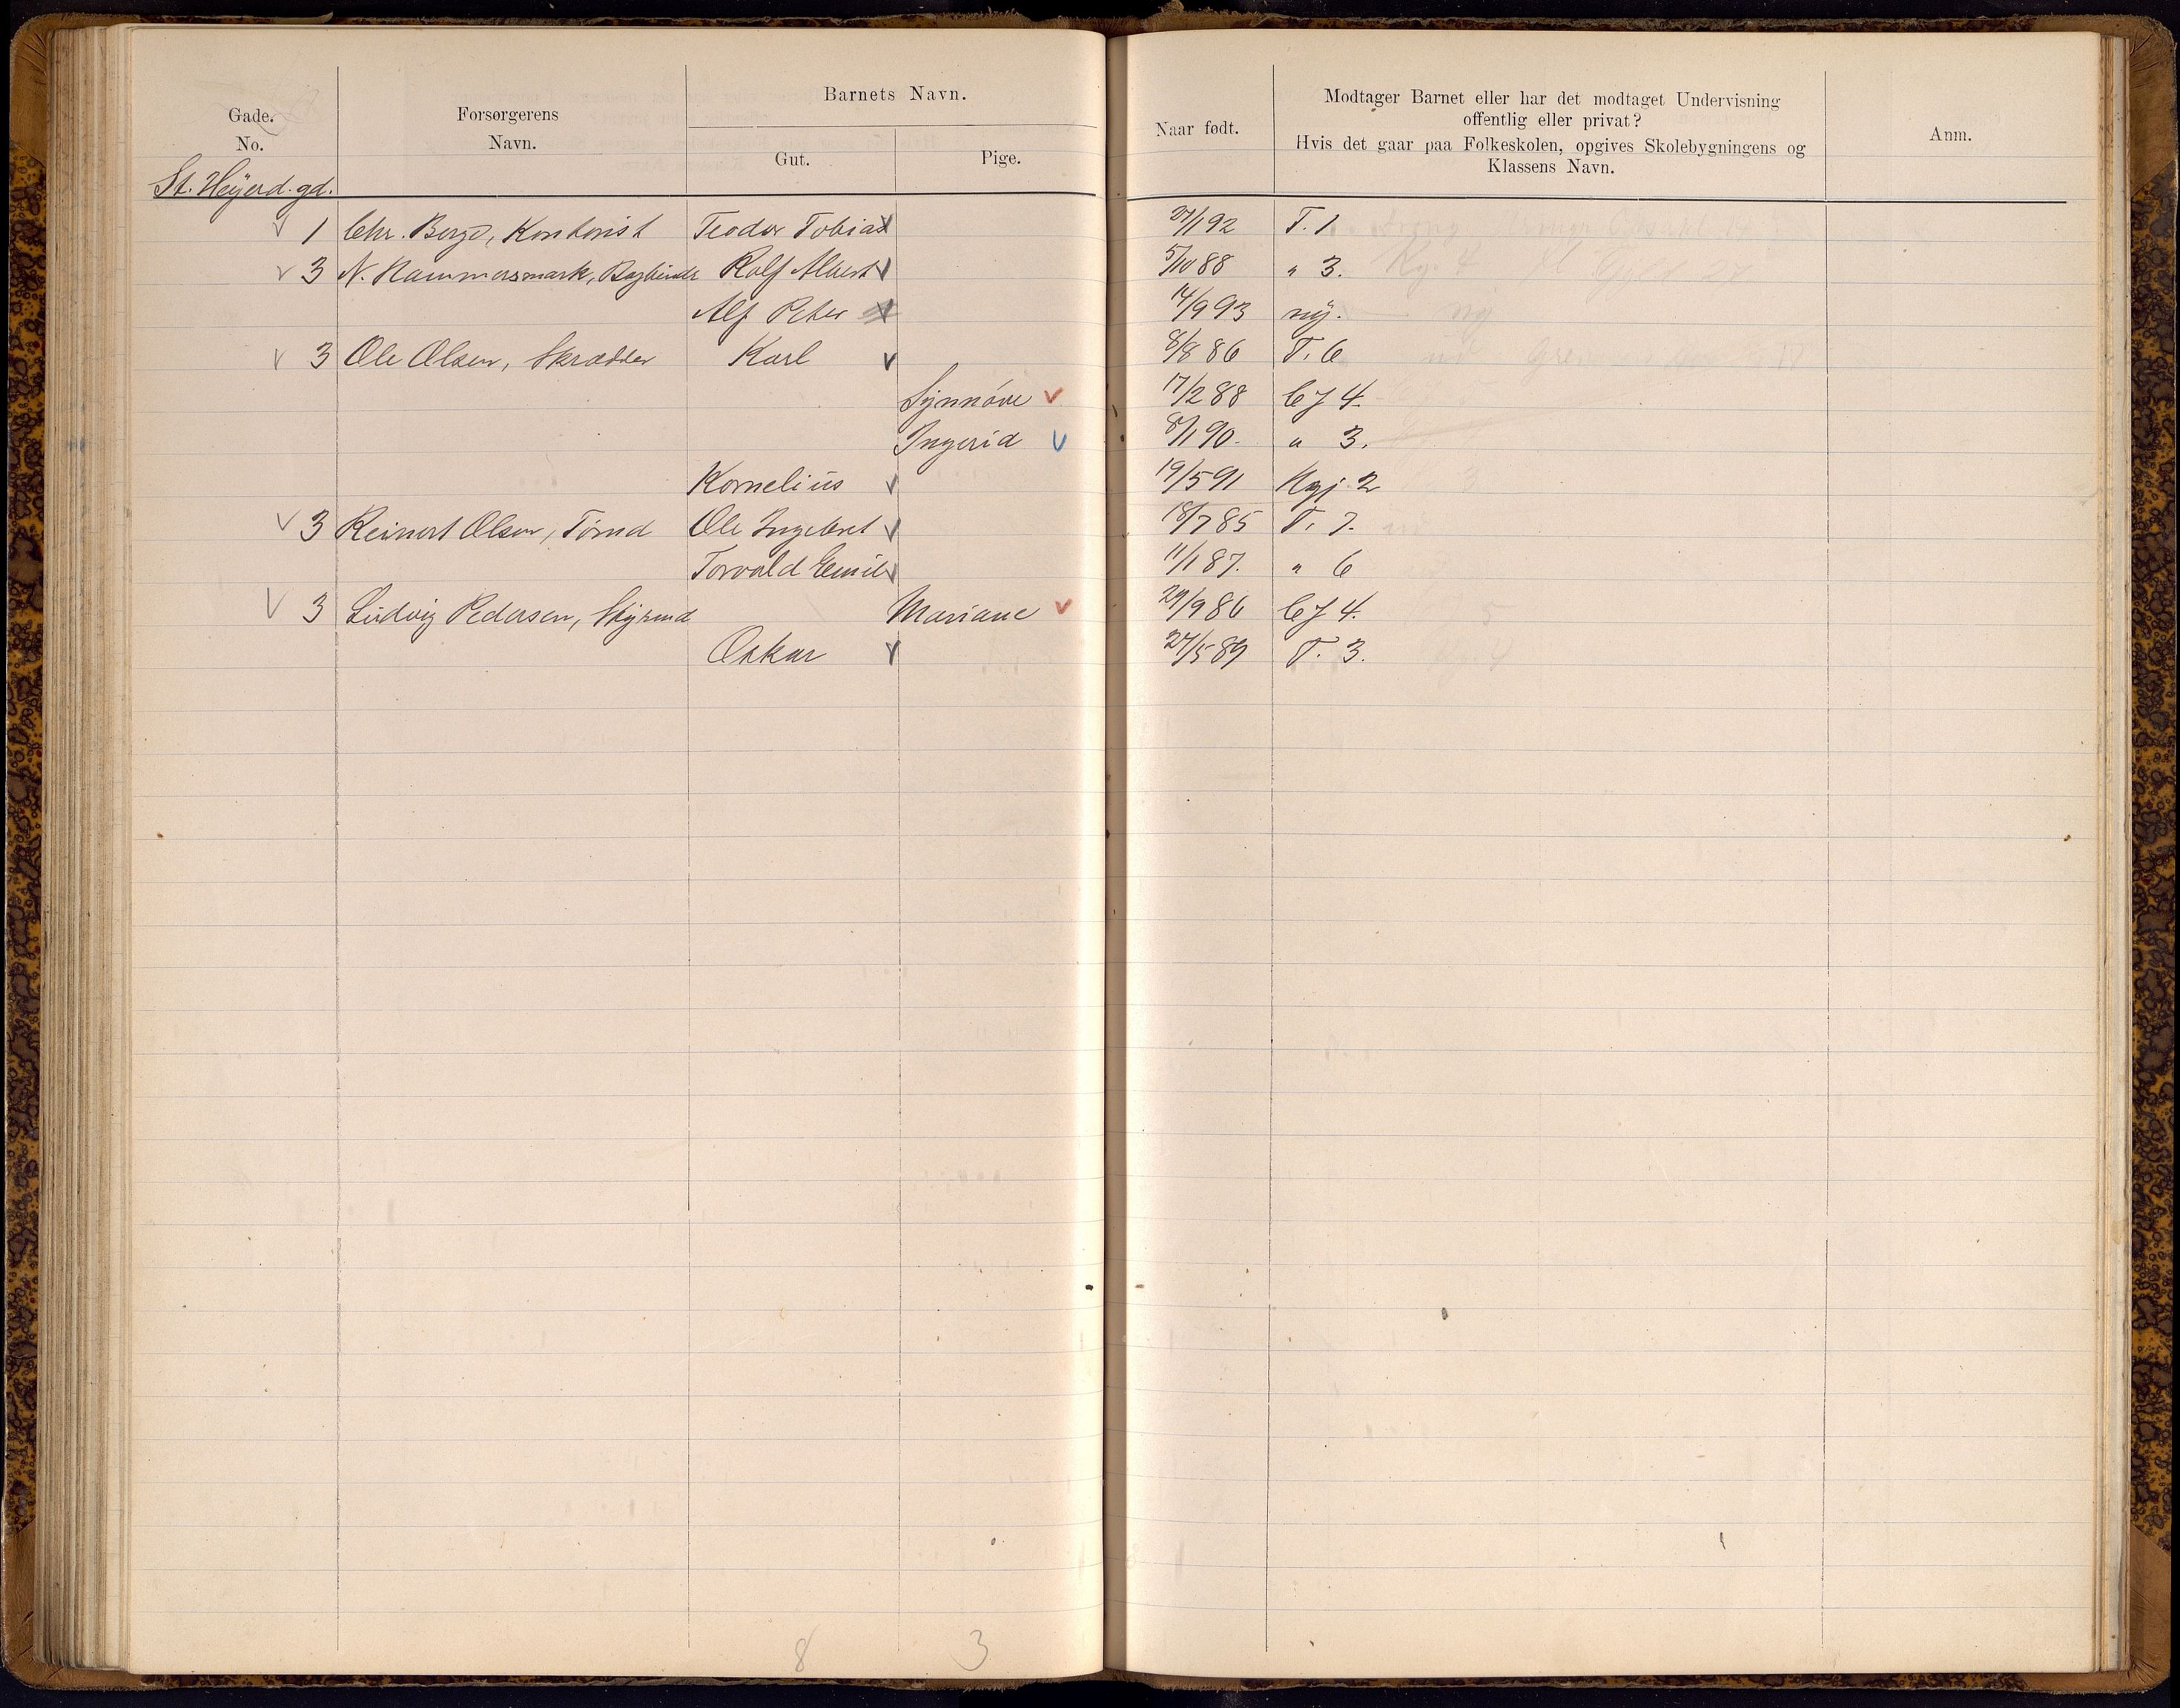 Gade.
No.
Forsørgerens
Navn.
Barnets Navn.
Gut.
Pige.
Naar født.
Modtager Barnet eller har det modtaget Undervisning
offentlig eller privat?
Hvis det gaar paa Folkeskolen, opgives Skolebygningens og
Klassens Navn.
Anm.
St. Heyerd. gd.
1 Chr. Berge, Kontorist Teodor Tobias 27/1 92 T. 1
3 N. Hammersmark, Bogbinder Rolf Albert 5/10 88 " 3.
Alf Peter 14/9 93 ny.
3 Ole Olsen, Skrædder Karl 8/8 86 T. 6
Synnöve 17/2 88 Cf 4.
Ingerid 8/1 90. " 3.
Kornelius 19/5 91 Kgj. 2
3 Reinert Olsen, Tømd Ole Ingebret 18/7 85 T. 7.
Torvald Emil 11/1 87. " 6
3 Ludvig Pedersen, Styrmd Mariane 29/9 86 Cf 4.
Oskar 27/5 89 T. 3.
8 3